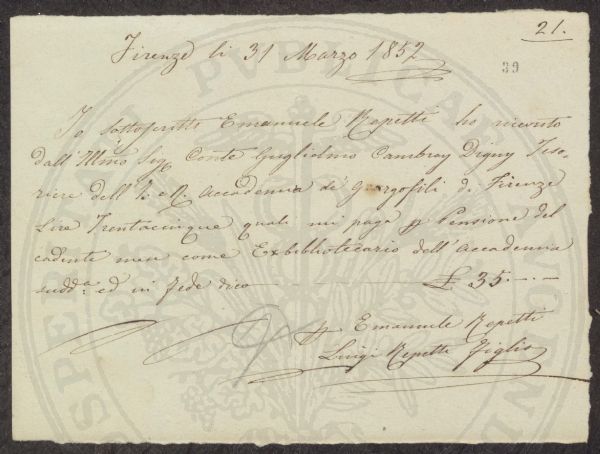 21.
Firenze li 31 Marzo 1852
39
Io sottoscritto Emanuele Repetti ho ricevuto
dall'Illmo Sigr Conte Guglielmo Cambray Digny Teso-
riere dell'I. e R. Accademia de' Georgofili di Firenze
Lire Trentacinque quali mi paga p Pensione del
cadente mese come Exbibliotecario dell'Accademia
sudda ed in fede dico £ 35.-.-
p Emanuele Repetti
Luigi Repetti Figlio